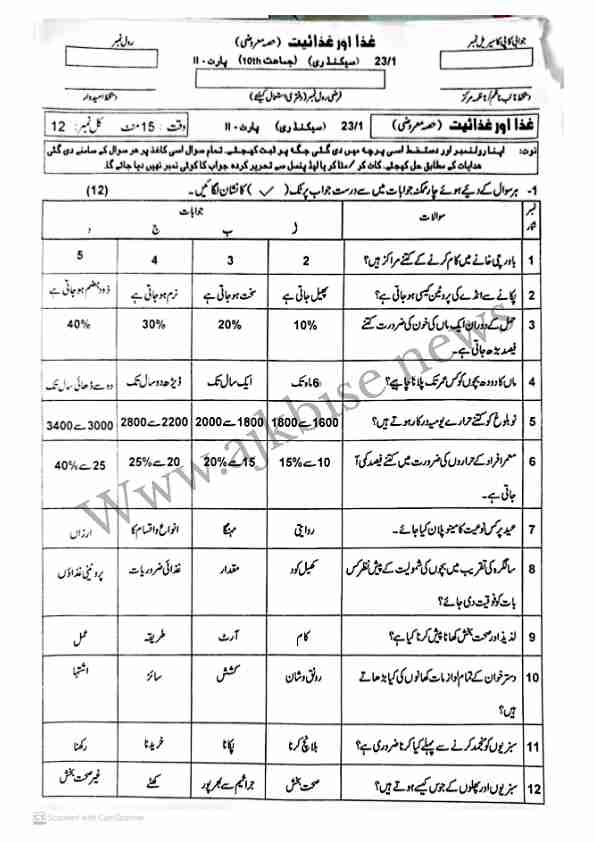 جوابی کاپی کا سیریل نمبر
غذا اور غذائیت (حصہ معروضی)
رول نمبر
23/1 (سیکنڈری) (جماعت 10th) پارٹ - II
دستخط نائب ناظم / ناظمہ مرکز
فرضی رول نمبر (دفتری استعمال کیلئے)
دستخط امیدوار
غذا اور غذائیت (حصہ معروضی) 23/1 (سیکنڈری) پارٹ - II وقت : 15 منٹ کل نمبر: 12
نوٹ: اپنا رولنمبر اور دستخط اسی پرچہ میں دی گئی جگہ پر ثبت کیجئے۔ تمام سوال اسی کاغذ پر ہر سوال کے سامنے دی گئی
ہدایات کے مطابق حل کیجئے۔ کاٹ کر / مٹا کر یا لیڈ پنسل سے تحریر کردہ جواب کا کوئی نمبر نہیں دیا جائے گا۔
1- ہر سوال کے دیے ہوئے چار ممکنہ جوابات میں سے درست جواب پر ٹک (✓) کا نشان لگائیں۔ (12)
نمبر شمار سوالات جوابات
ا ب ج د
1 باورچی خانے میں کام کرنے کے کتنے مراکز ہیں؟ 2 3 4 5
2 پکانے سے انڈے کی پروٹین کیسی ہو جاتی ہے؟ پھیل جاتی ہے سخت ہو جاتی ہے نرم ہو جاتی ہے زود ہضم ہو جاتی ہے
3 حمل کے دوران ایک ماں کی خون کی ضرورت کتنے 10% 20% 30% 40%
فیصد بڑھ جاتی ہے۔
4 ماں کا دودھ بچوں کو کس عمر تک پلانا چاہیے؟ 6 ماہ تک ایک سال تک ڈیڑھ دو سال تک دو سے ڈھائی سال تک
5 نو بلوغ کو کتنے حرارے یومیہ درکار ہوتے ہیں؟ 1600 سے 1800 1800 سے 2000 2200 سے 2800 3000 سے 3400
6 معمر افراد کے حراروں کی ضرورت میں کتنے فیصد کمی آ 10 سے 15% 15 سے 20% 20 سے 25% 25 سے 40%
جاتی ہے۔
7 عید پر کس نوعیت کا مینو پلان کیا جائے۔ روایتی مہنگا انواع و اقسام کا ارزاں
8 سالگرہ کی تقریب میں بچوں کی شمولیت کے پیش نظر کس کھیل کود مقدار غذائی ضروریات پروٹینی غذاؤں
بات کو فوقیت دی جائے؟
9 لذیذ اور صحت بخش کھانا پیش کرنا کیا ہے؟ کام آرٹ طریقہ عمل
10 دسترخوان کے تمام لوازمات کھانوں کی کیا بڑھاتے رونق و شان کشش سائز اشتہا
ہیں؟
11 سبزیوں کو منجمد کرنے سے پہلے کیا کرنا ضروری ہے؟ بلانچ کرنا پکانا خریدنا رکھنا
12 سبزیوں اور پھلوں کے جوس کیسے ہوتے ہیں؟ صحت بخش جراثیم سے بھرپور کھٹے غیر صحت بخش
www.ajkbise.news
CS Scanned with CamScanner